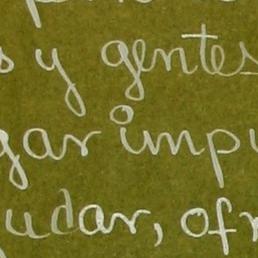 y gentes
gar impu
udar, ofr